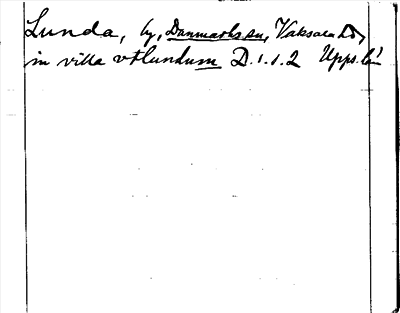 Lunda, by, Danmarks sn, Vaksala hd,
in villa vtlundum D. 1. 1. 2 Upps. län